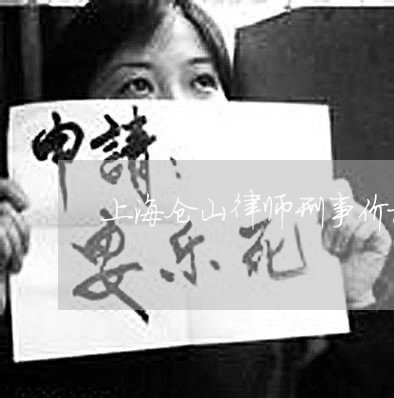 申請：
上海仓山律师刑事价
安乐死